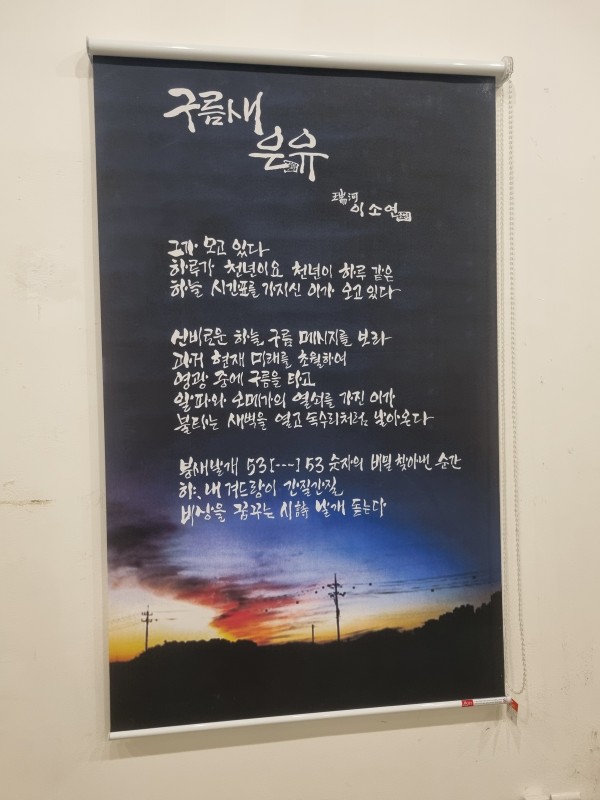 구름새
은유
瑞河 이소연
그가 오고 있다
하루가 천년이요 천년이 하루 같은
하늘 시간표를 가지신 이가 오고 있다
신비로운 하늘 구름 메시지를 보라
과거 현재 미래를 초월하여
영광 중에 구름을 타고
알파와 오메가의 열쇠를 가진 이가
불타는 새벽을 열고 독수리처럼 날아온다
봉새날개 53[---]53 숫자의 비밀 찾아낸 순간
아, 내 겨드랑이 간질간질
비상을 꿈꾸는 시詩 날개 돋는다